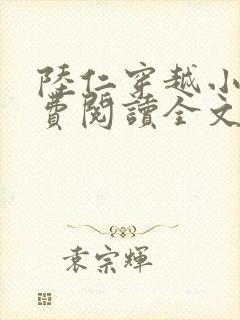 陸仁穿越小
費閱讀全文
袁宗輝